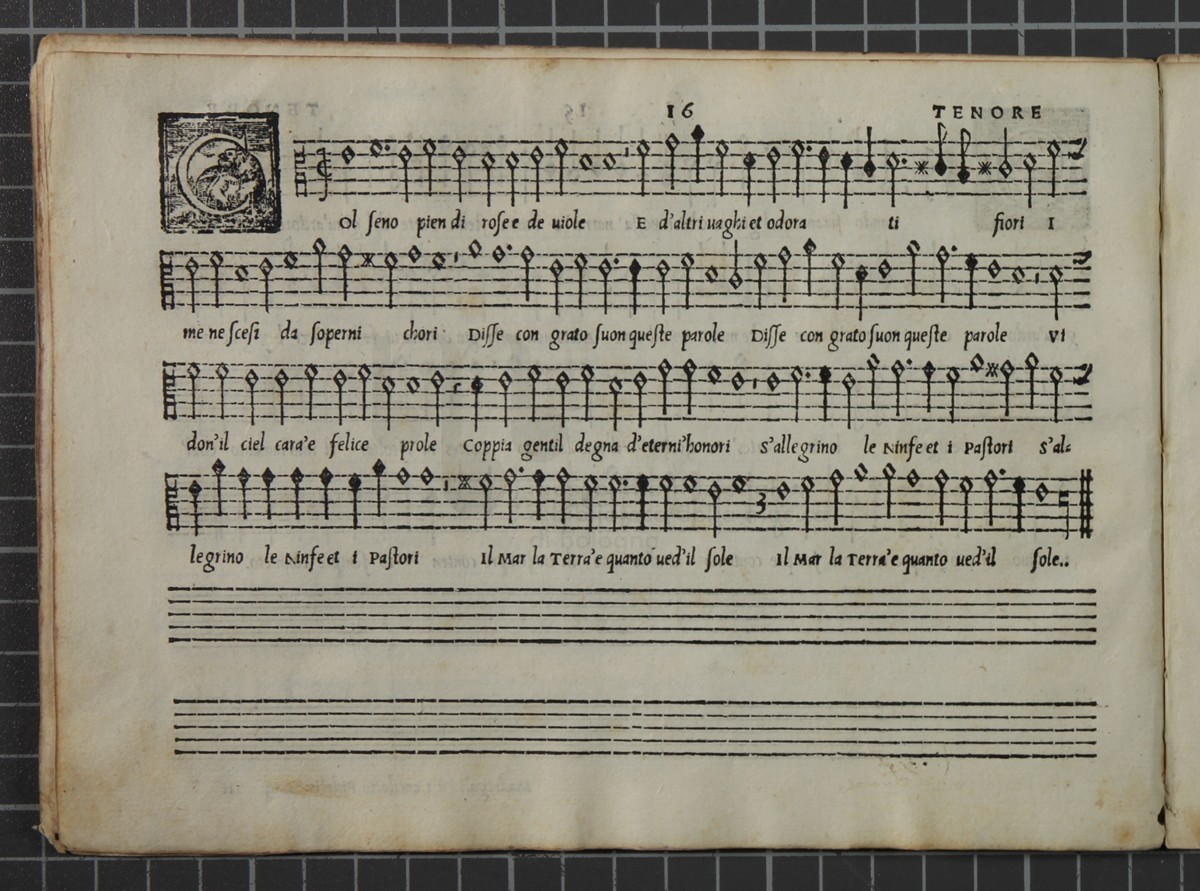 16 TENORE
COl seno pien di rose e de uiole E d'altri uaghi et odora ti fiori I
me ne scesi da soperni chori Disse con grato suon queste parole Disse con grato suon queste parole Vi
don'il ciel cara'e felice prole Coppia gentil degna d'eterni'honori S'allegrino le Ninfe et i Pastori S'al-
legrino le Ninfe et i Pastori Il Mar la Terra'e quanto ued'il sole Il Mar la Terra'e quanto ued'il sole..